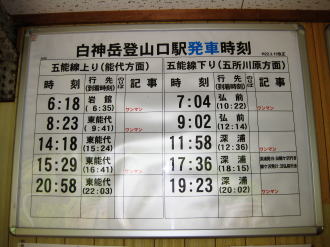 白神岳登山口駅発車時刻
五能線上り(能代方面)
時刻 行先(到着時刻) のりば 記事
6:18 岩館(6:35) ワンマン
8:23 東能代(9:41) ワンマン
14:18 東能代(15:24)
15:29 東能代(16:41) ワンマン
20:58 東能代(22:03)
五能線下り(五所川原方面)
時刻 行先(到着時刻) のりば 記事
7:04 弘前(10:22) ワンマン
9:02 弘前(12:14)
11:58 深浦(12:36) ワンマン
17:36 深浦(18:15)
19:23 深浦(20:02) ワンマン